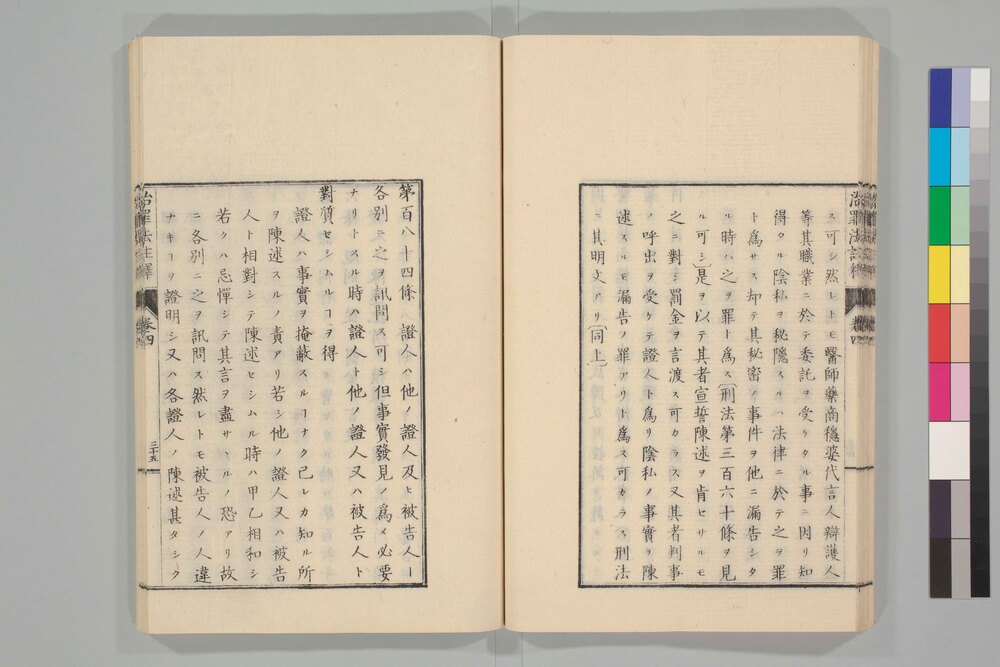 治罪法註釋 卷四
ス可シ然レトモ醫師藥商穩婆代言人辯護人
等其職業ニ於テ委託ヲ受ケタル事ニ因リ知
得タル陰私ヲ秘隱スルハ法律ニ於テ之ヲ罪
ト爲サス却テ其秘密ノ事件ヲ他ニ漏告シタ
ル時ハ之ヲ罪ト爲ス(刑法第三百六十條ヲ見
ル可シ)是ヲ以テ其者宣誓陳述ヲ肯セサルモ
之ニ對シ罰金ヲ言渡ス可カラス又其者判事
ノ呼出ヲ受ケテ證人ト爲リ陰私ノ事實ヲ陳
述スルモ漏告ノ罪アリト爲ス可カラス刑法
ニ其明文アリ(同上)
第百八十四條 證人ハ他ノ證人及ヒ被告人ト
各別ニ之ヲ訊問ス可シ但事實發見ノ爲メ必要
ナリトスル時ハ證人ト他ノ證人又ハ被告人ト
對質セシムルヿヲ得
證人ハ事實ヲ掩蔽スルヿナク己レカ知ル所
ヲ陳述スルノ責アリ若シ他ノ證人又ハ被告
人ト相對シテ陳述セシムル時ハ甲乙相和シ
若クハ忌憚シテ其言ヲ盡サヽルノ恐アリ故
ニ各別ニ之ヲ訊問ス然レトモ被告人ノ人違
ナキヿヲ證明シ又ハ各證人ノ陳述甚タシク
治罪法註釋 卷四 三十五